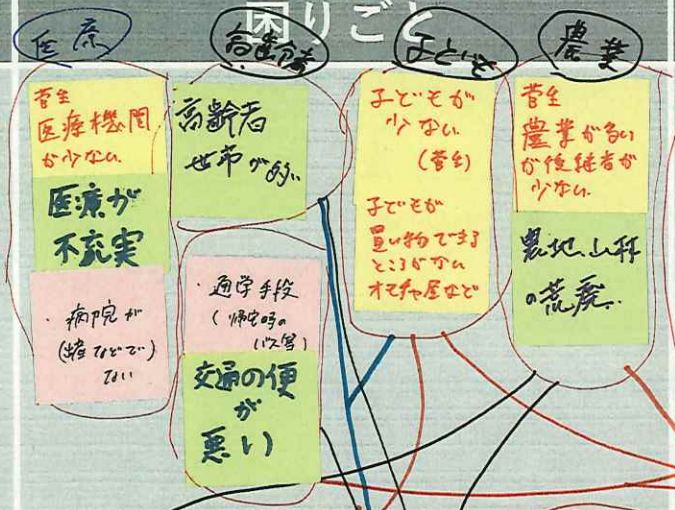 困りごと
医療
高齢者
子ども
農業
菅生
医療機関
が少ない
医療が
不充実
・病院が
ない
高齢者
世帯が多い
・通学手段
(帰宅時の
バス等)
交通の便
が
悪い
子どもが
少ない
(菅生)
子どもが
買い物できる
ところがない
オモチャ屋など
菅生
農業が多い
が後継者が
少ない
農地、山林
の荒廃